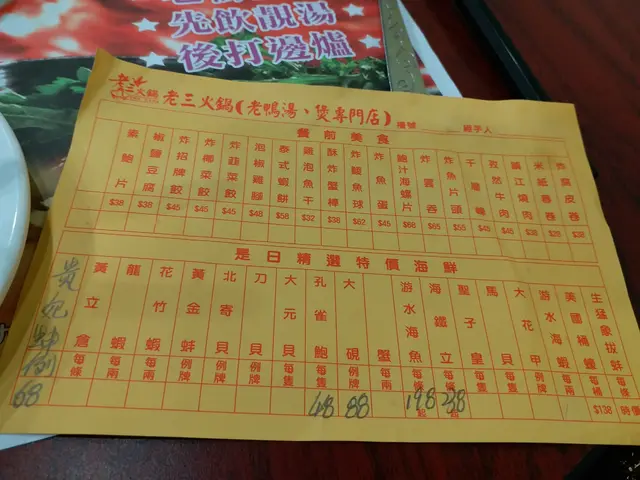 先飲靚湯
後打邊爐
老三火鍋(老鴨湯、煲專門店)
檯號 經手人
餐前美食
炸腐皮卷 $38
米紙春卷 $28
鎮江燒肉 $38
孜然牛肉 $48
千層糉 $45
炸魚片頭 $55
炸雲吞 $65
鮑汁海螺片 $66
炸魚蛋 $45
炸鯪魚球 $62
酥炸蟹棒 $38
雞泡魚干 $32
泰式蝦餅 $58
泡椒雞腳 $48
炸韮菜餃 $45
炸椰菜餃 $45
炸招牌餃 $45
椒鹽豆腐 $38
素鮑片 $38
是日精選特價海鮮
生猛象拔蚌 時價
美國桶蠔 每桶 $138
游水海蝦 每兩
大花甲 例牌
馬貝 每隻
聖子皇 每隻
海鐵立 每條起 238
游水海魚 每條起 198
蟹 每隻
大硯 例牌 88
孔雀鮑 每隻 48
大元貝 每隻
刀貝 例牌
北寄貝 例牌
黃金蚌 例牌
花竹蝦 每兩
龍蝦 每兩
黃立倉 每條
貴妃蚌 例 68